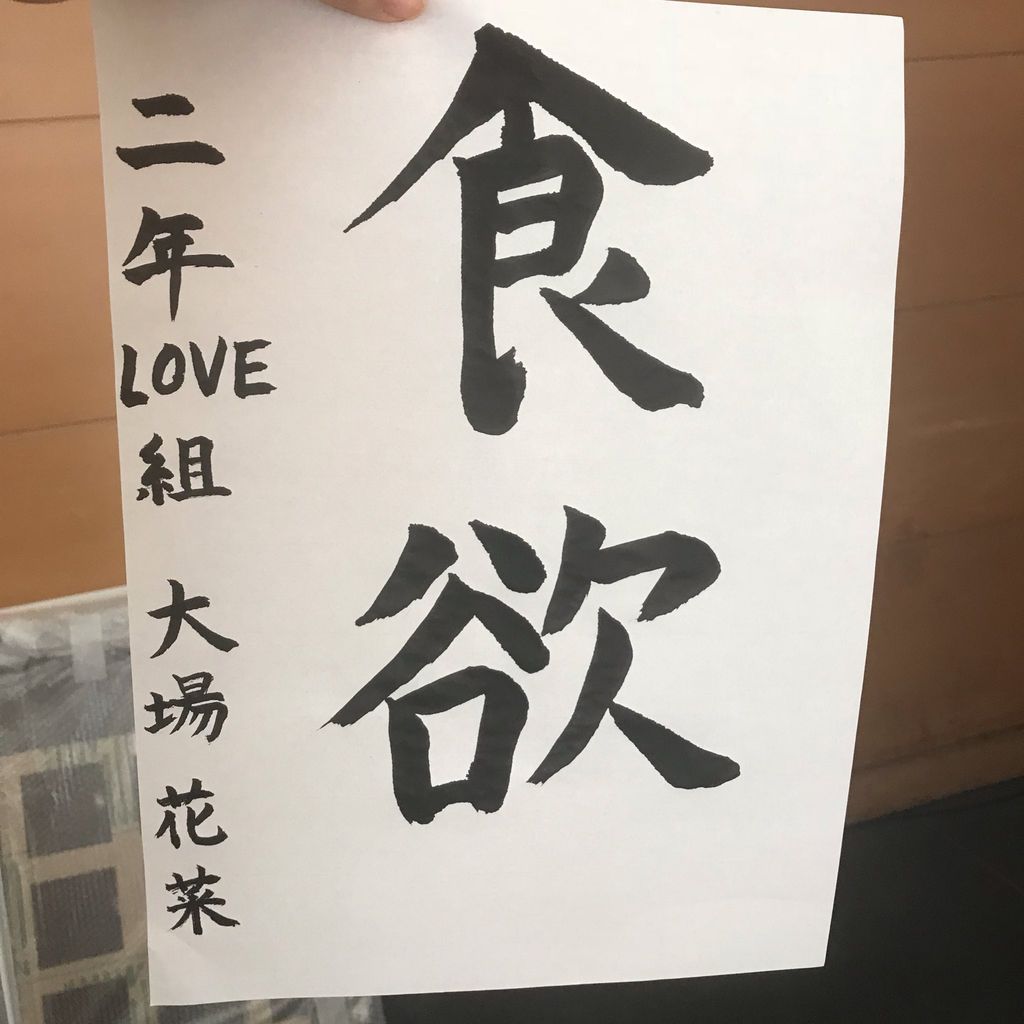 食欲
二年LOVE組 大場 花菜